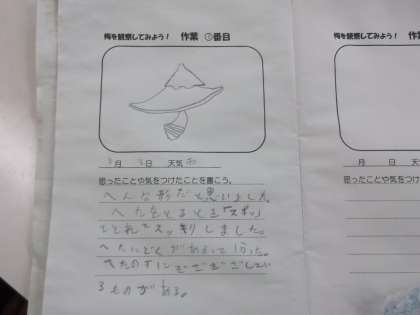 梅を観察してみよう！ 作業 ②番目
月 日 天気
思ったことや気をつけたことを書こう。
へんな形だと思いました。
へたをとるとき「スポッ」
ととれてスッキリしました。
へたにどくがあるって分った。
へたの下にぎざぎざしてい
るものがある。
梅を観察してみよう！ 作
月 日 天
思ったことや気をつけた